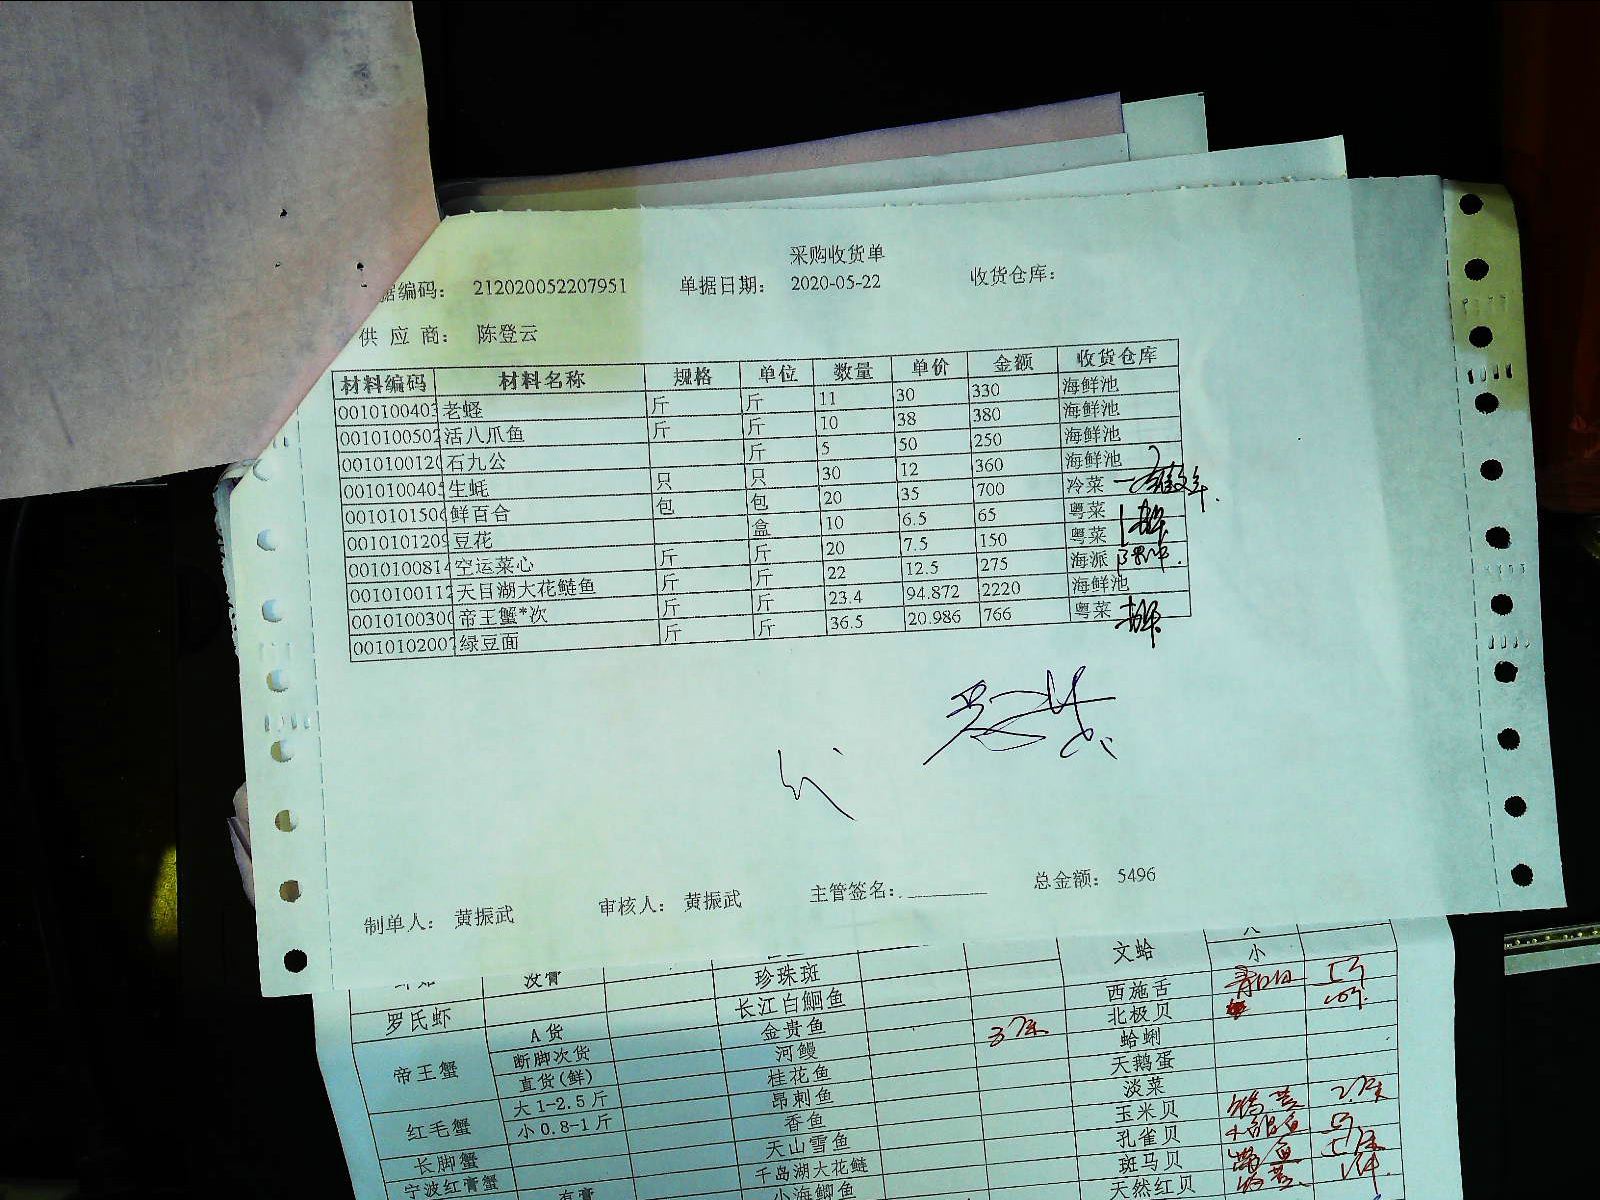 采购收货单
据编码： 212020052207951 单据日期： 2020-05-22 收货仓库：
供 应 商： 陈登云
材料编码 材料名称 规格 单位 数量 单价 金额 收货仓库
0010100403 老蛏 斤 斤 11 30 330 海鲜池
0010100502 活八爪鱼 斤 斤 10 38 380 海鲜池
001010012 石九公 斤 5 50 250 海鲜池
001010040 生蚝 只 只 30 12 360 海鲜池
001010150 鲜百合 包 包 20 35 700 冷菜
0010101209 豆花 盒 10 6.5 65 粤菜
001010081 空运菜心 斤 斤 20 7.5 150 粤菜
001010011 天目湖大花鲢鱼 斤 斤 22 12.5 275 海派
001010030 帝王蟹*次 斤 斤 23.4 94.872 2220 海鲜池
001010200 绿豆面 斤 斤 36.5 20.986 766 粤菜
制单人： 黄振武 审核人： 黄振武 主管签名： 总金额： 5496
没膏 珍珠斑 文蛤 小
罗氏虾 长江白鮰鱼 西施舌
A 货 金贵鱼 北极贝
帝王蟹 断脚次货 河鳗 蛤蜊
直货(鲜) 桂花鱼 天鹅蛋
红毛蟹 大 1-2.5 斤 昂刺鱼 淡菜
小 0.8-1 斤 香鱼 玉米贝
长脚蟹 天山雪鱼 孔雀贝
宁波红膏蟹 千岛湖大花鲢 斑马贝
有膏 小海鲫鱼 天然红贝